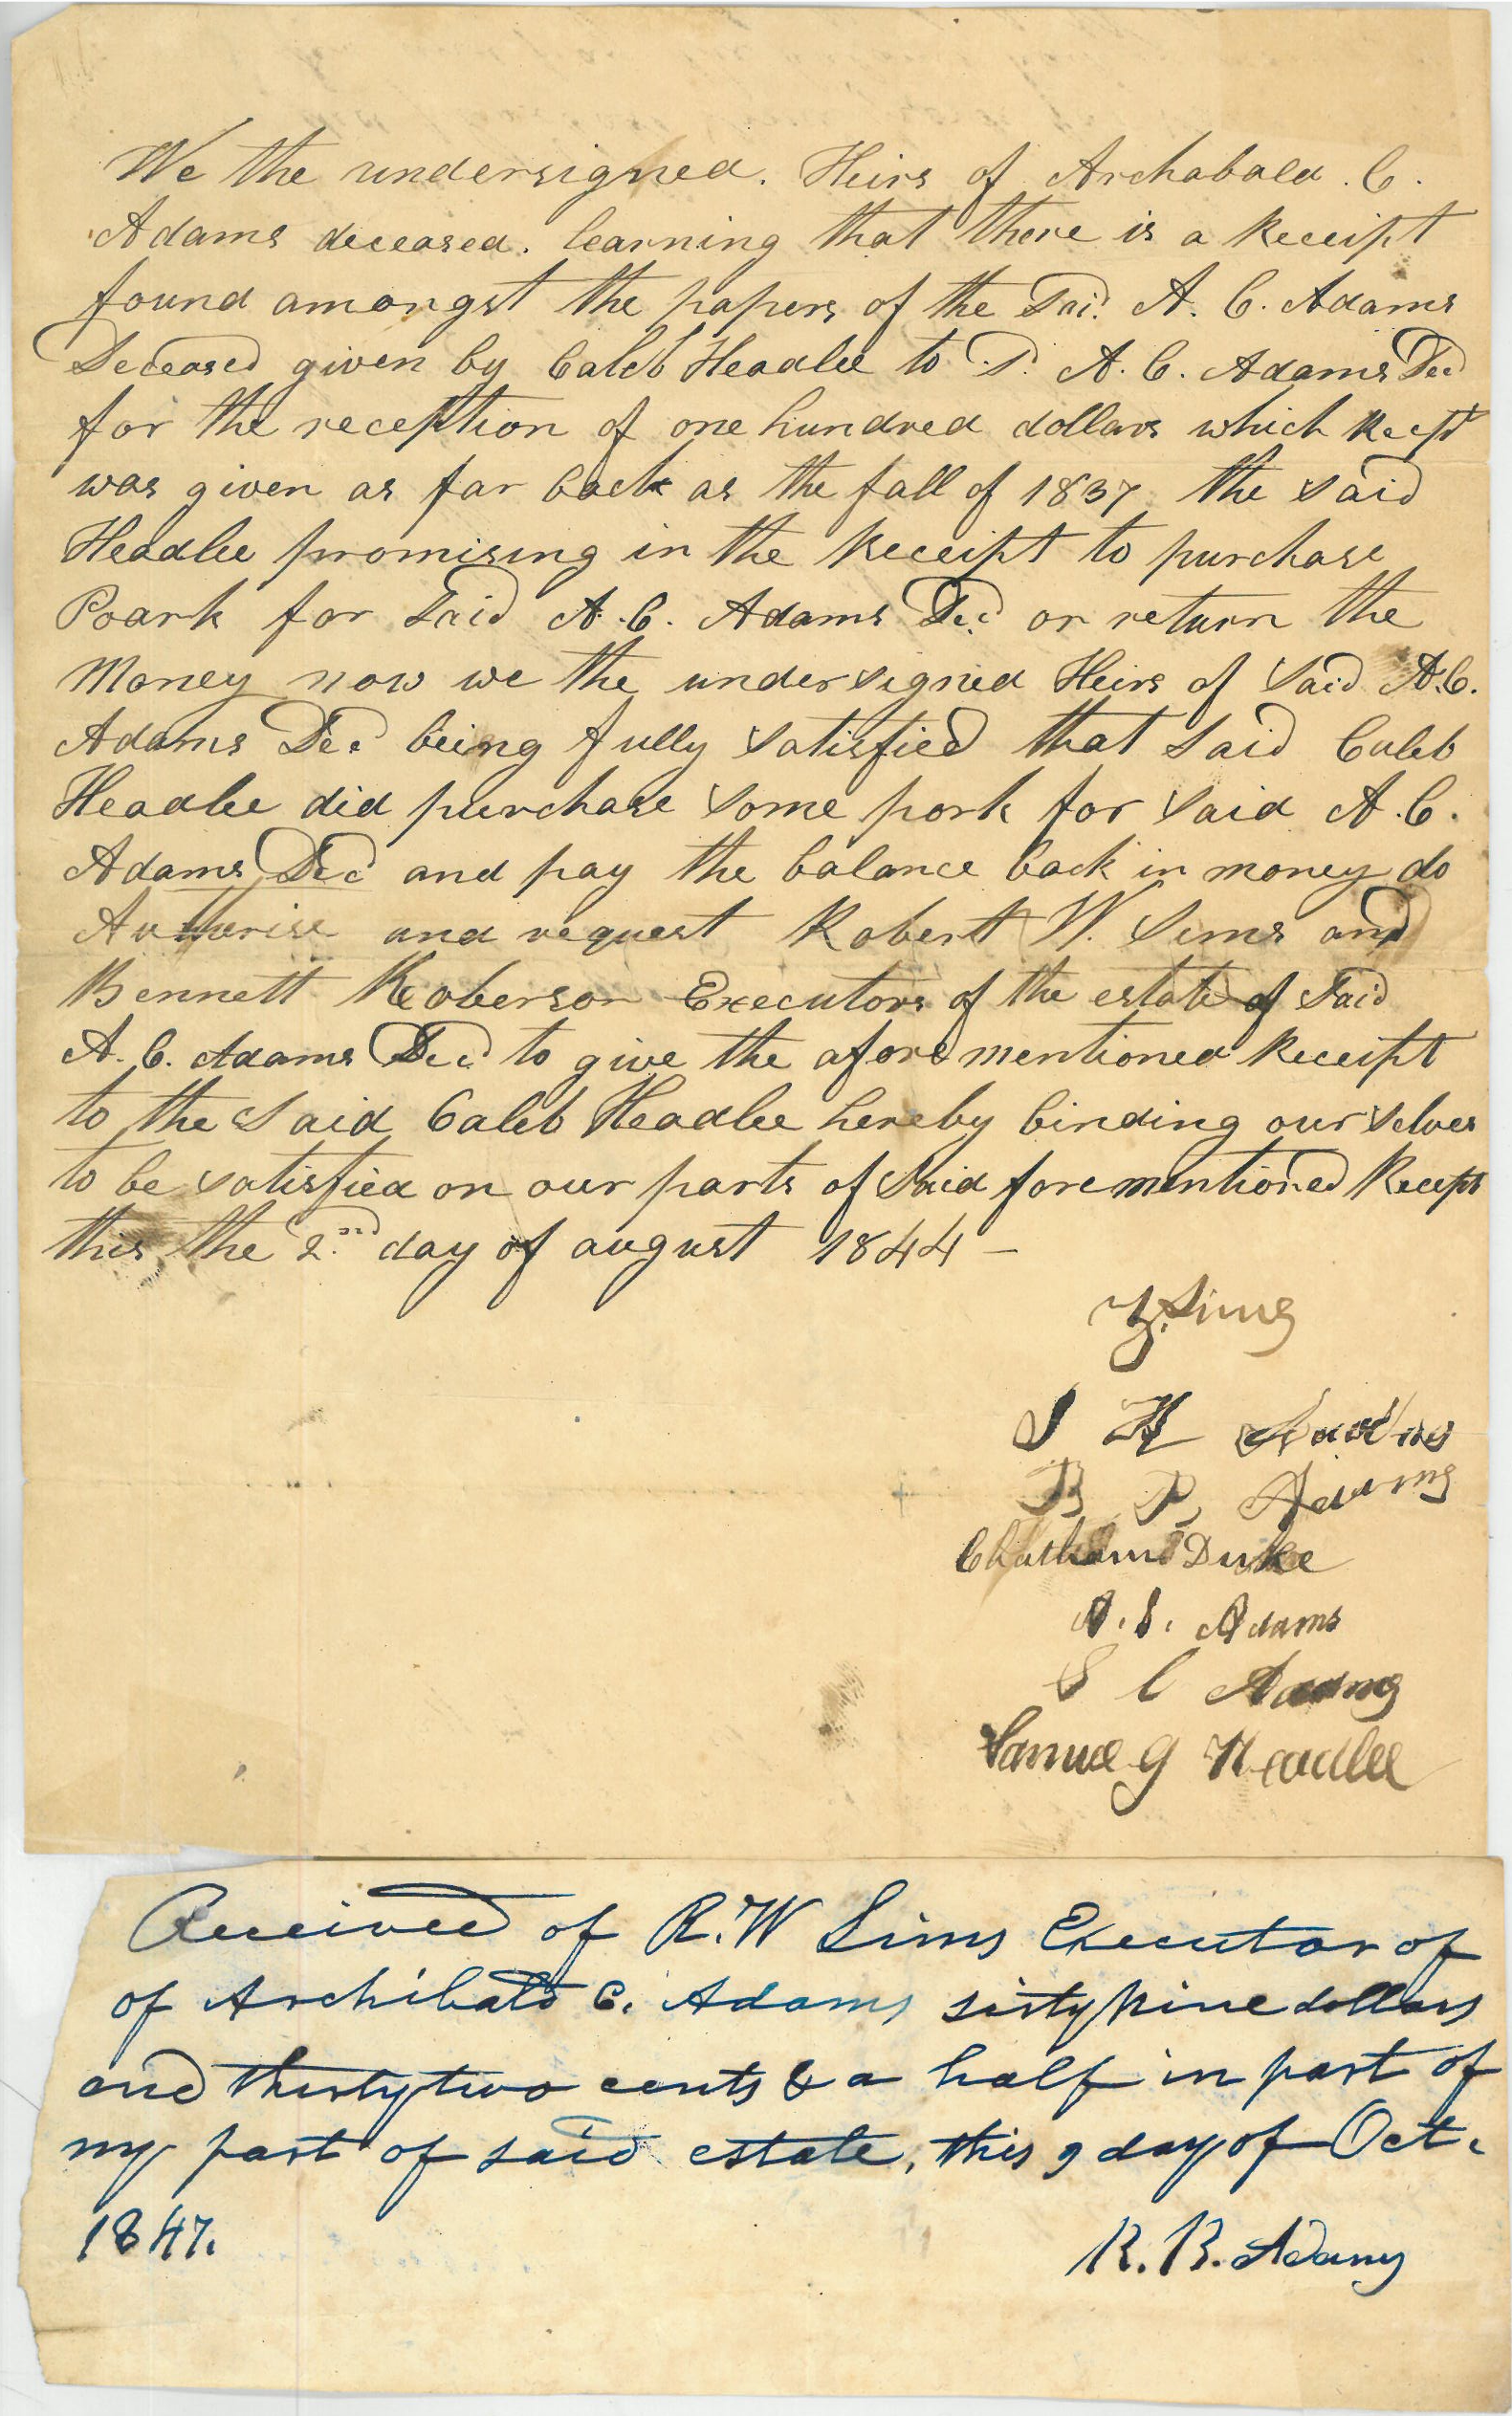 We the undersigned. Heirs of Archabald. C.
Adams deceased. learning that there is a Receipt
found amongst the papers of the Said A. C. Adams
Deceased given by Caleb Headlee to S.d A. C. Adams Decd
for the reception of one hundred dollars which Recpt
was given as far back as the fall of 1837 the said
Headlee promising in the Receipt to purchase
Poark for Said A. C. Adams Decd or return the
Money now we the undersigned Heirs of Said A.C.
Adams Decd being fully satisfied that Said Caleb
Headlee did purchase some pork for said A. C.
Adams Decd and pay the balance back in money do
Autherise and request Robert W. Sims and
Bennett Roberson Executors of the estate of Said
A. C. Adams Decd to give the aforementioned Receipt
to the Said Caleb Headlee hereby binding our selves
to be satisfied on our parts of Said forementioned Recept
this the 2nd day of august 1844 –
Z. Sims
S H Adams
B P, Adams
Chatham Duke
A. S. Adams
S C Adams
Samuel G Headlee
Received of R. W Sims Executor of
of Archibald C. Adams sixty nine dollars
and thirty two cents & a half in part of
my part of said estate, this 9 day of Oct.
1847.
R. B. Adams